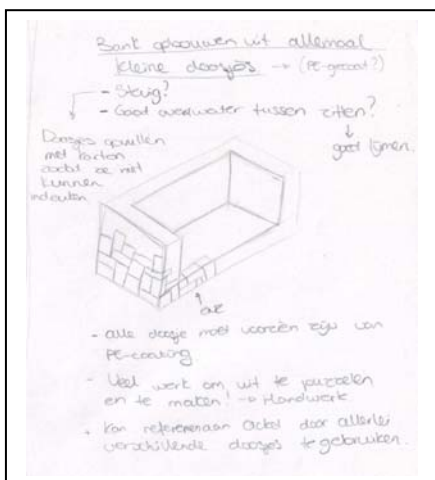 Bank opbouwen uit allemaal
kleine doosjes → (PE-gecoat?)
- Stevig?
- Gaat water tussen zitten?
goed lijmen.
Doosjes opvullen
met karton
zodat ze niet
kunnen
indeuken
- alle doosje moet voorzien zijn van
PE-coating
- Veel werk om uit te puzzelen
en te maken! → Handwerk
+ Kan refereren aan door allerlei
verschillende doosjes te gebruiken.